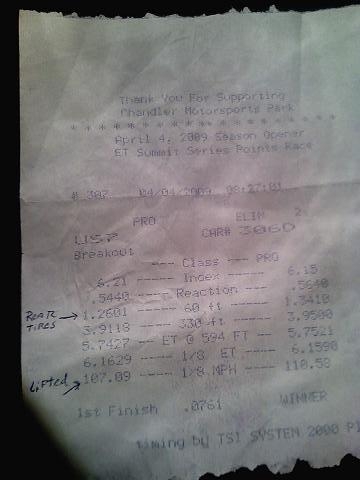 Thank You For Supporting
Chandler Motorsports Park
* * * * * * * * * * * * * * * * * * * *
April 4, 2009 Season Opener
ET Summit Series Points Race
# 307 04/04/2009 08:27:01
PRO ELIM 2
US7 CAR# 306D
Breakout
---- Class ---- PRO
6.21 ----- Index ----- 6.15
.5440 ---- Reaction ---- .5640
Rear Tires → 1.2601 ----- 60 ft ----- 1.3410
3.9118 ---- 330 ft ---- 3.9500
5.7427 -- ET @ 594 FT -- 5.7521
6.1629 ---- 1/8 ET ---- 6.1590
Lifted → 107.09 ---- 1/8 MPH ---- 110.58
1st Finish .0761 WINNER
timing by TSI SYSTEM 2000